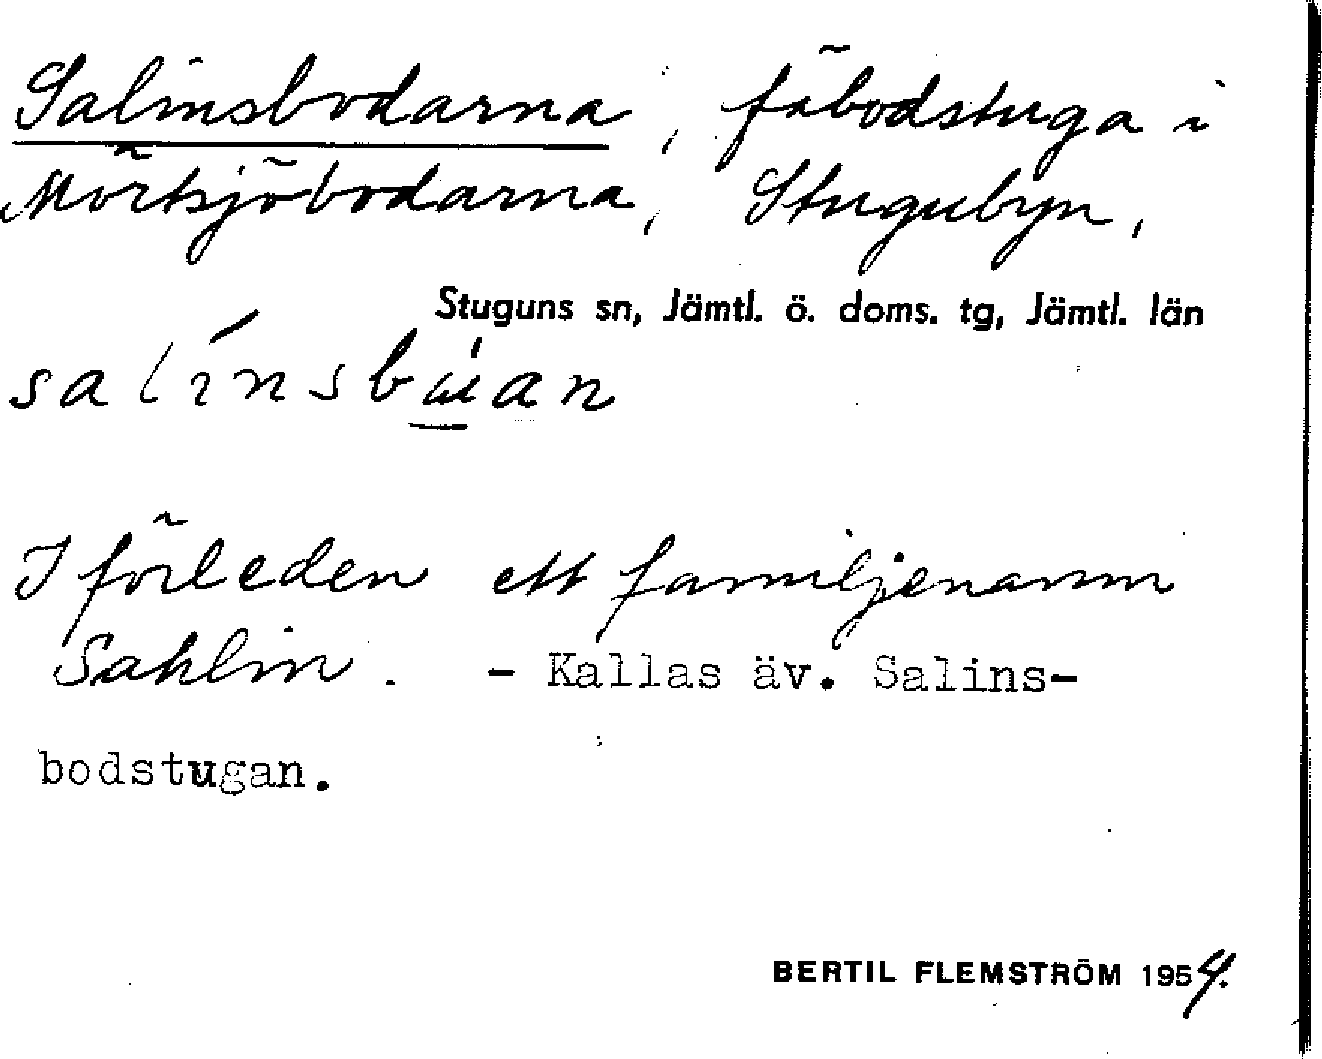 Salinsbodarna, fäbodstuga i
Mörtsjöbodarna, Stugubyn,
Stuguns sn, Jämtl. ö. doms. tg, Jämtl. län
I förleden ett familjenamn
Sahlin. - Kallas äv. Salins-
bodstugan.
BERTIL FLEMSTRÖM 1954.